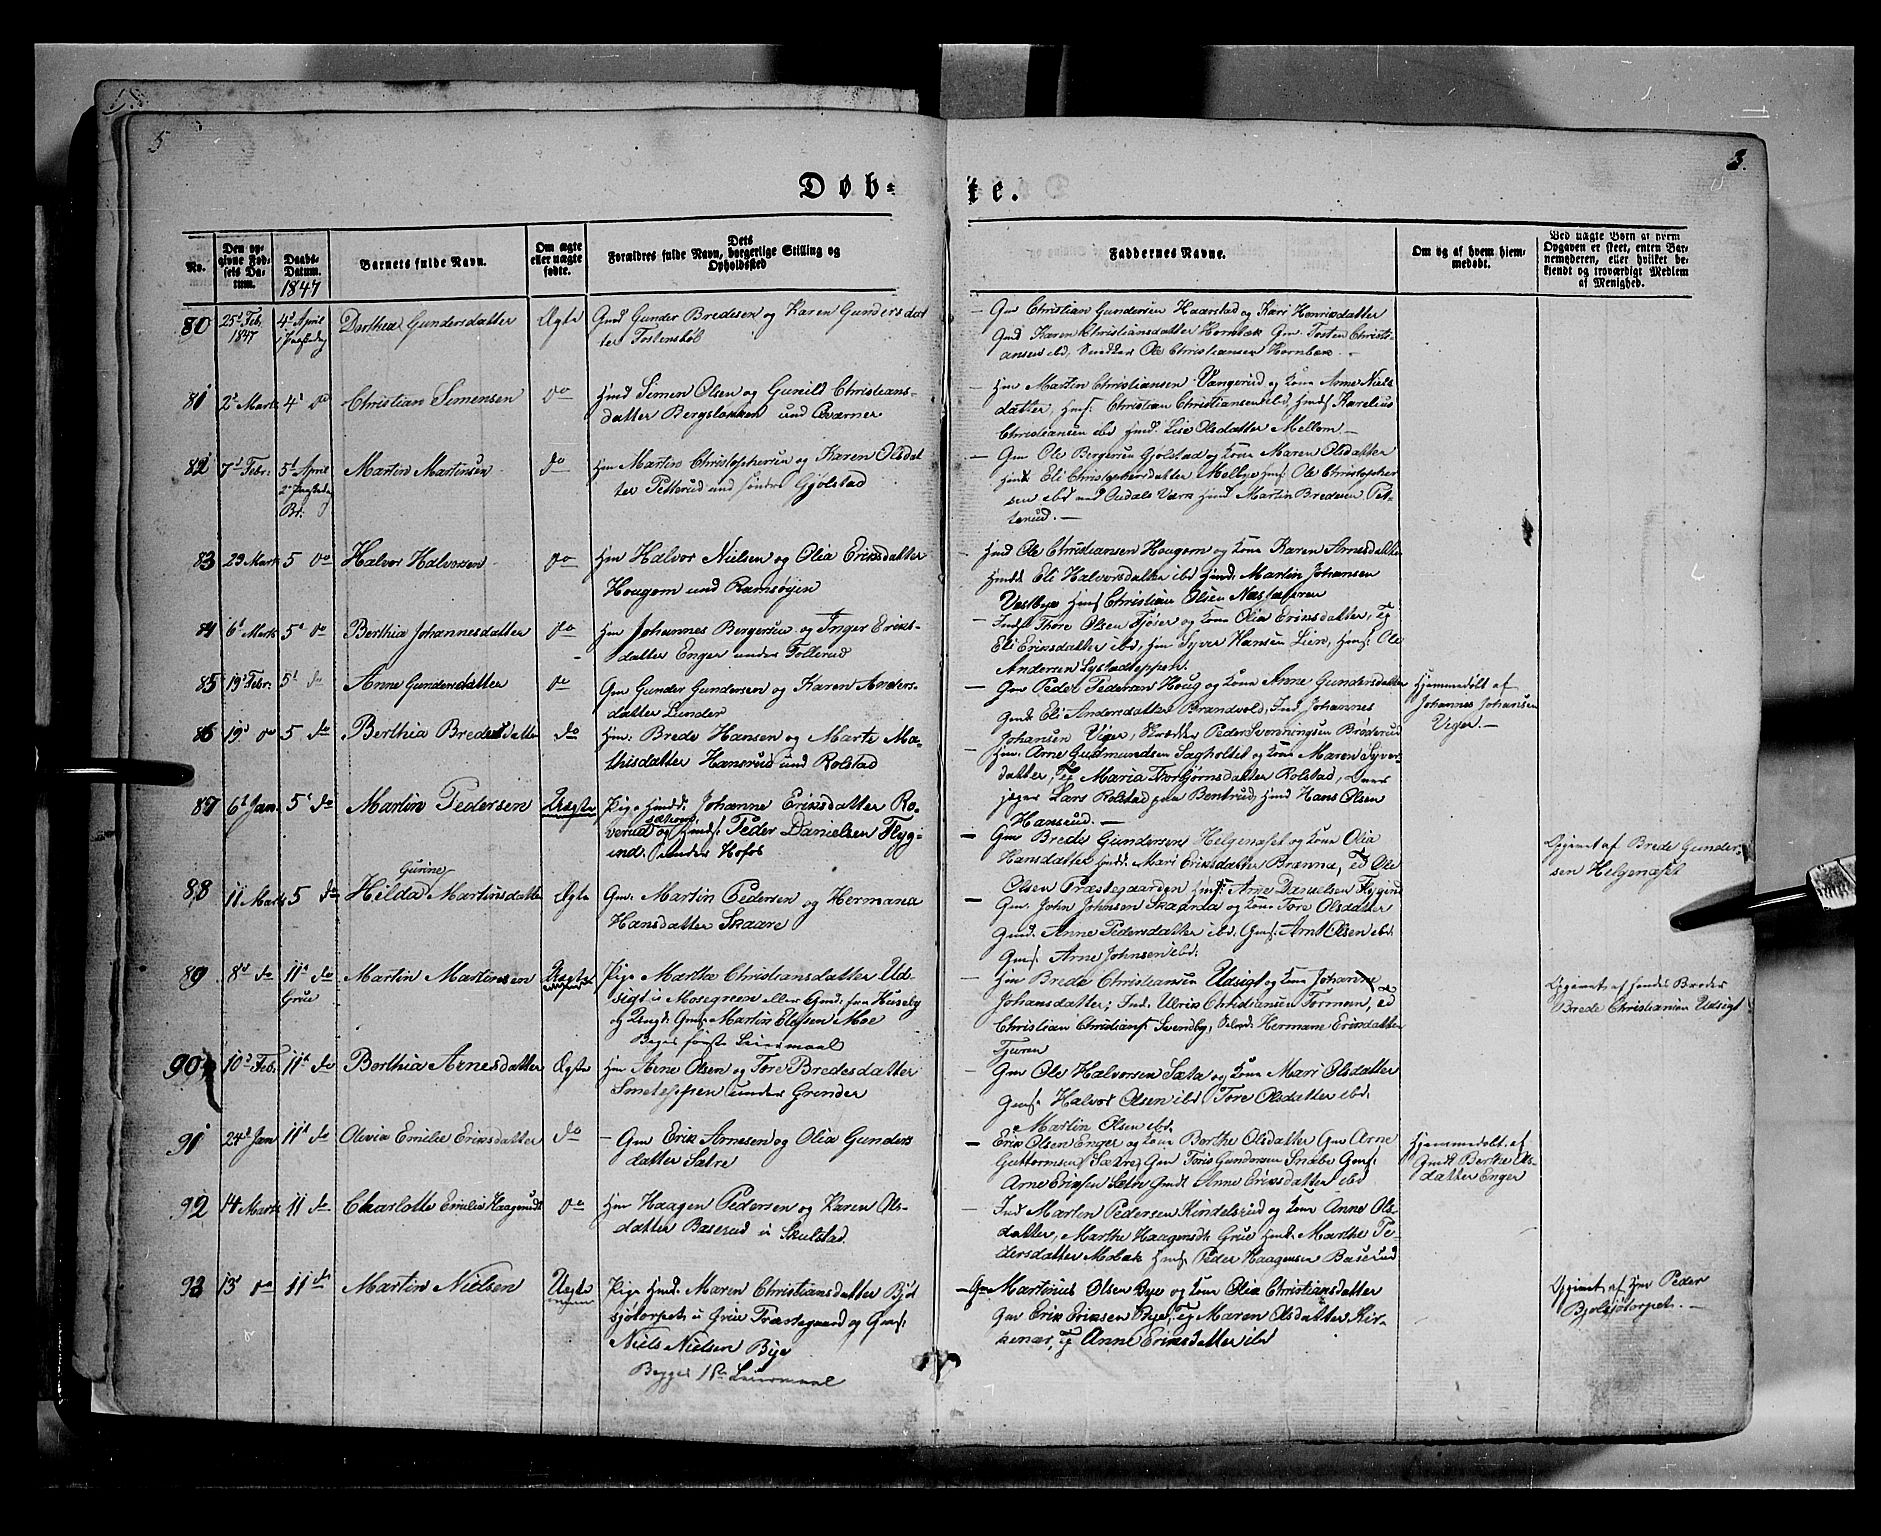 5
3.
Døb-
te.
No.
Den opgivne Fødsels Datum.
Daabs-Datum.
1847
Barnets fulde Navn.
Om ægte eller uægte fødte.
Forældres fulde Navn, Dets borgerlige Stilling og Opholdssted
Faddernes Navne.
Om og af hvem hjemmedøbt.
Ved uægte Børn af hvem Opgaven er skeet, enten Barnemoderen, eller hvilket bekjendt og troværdigt Medlem af Menighed.
80 25d Feb. 1847 4d April Dorthea Gundersdatter Ægte Gmd Gunder Bredesen og Karen Gundersdat
ter Tostenshol
Gm Christian Gundersen Haarstad og Kari Henriksdatter
Gmd Karen Christiansdatter Hornbæk Gm Tosten Christi-
ansen ibd, Ole Christiansen Hornbæk
81 2d Marts 4d do Christian Simensen do Hmd Simen Olsen og Gunild Christians-
datter Bergsløkken und Overner
Hm Martin Christiansen Vangerud og Kone Anne Niels
datter, Hmf. Christian Christiansen ibd, Hmds Karelius
Christiansen ibd Hmd. Lise Olsdatter Mellem
82 7d Febr. 5d April Martin Martinsen do Hm Martin Christophersen og Karen Olsdat
ter Petterud und søndre Gjølstad
Gm Ole Bergersen Gjølstad og Kone Maren Olsdatter
Hmd Eli Christophersdatter Melbye Hmf Ole Christopher
sen ibd ved Oudals Værk Hmd Martin Bredesen Pet-
terud.
83 29 Marts 5 do Halvor Halvorsen do Hm Halvor Nielsen og Olia Eriksdatter
Hougom und Ramsøyen
Hmd Ole Christiansen Hougom og Kone Karen Arnesdatter
Hmds Eli Halvorsdatter ibd Hmd. Martin Johansen
Vestbye Hmf Christian Olsen Næstasøren
84 6d Marts 5d do Berthia Johannesdatter do Hm Johannes Bergersen og Inger Eriks-
datter Enger under Tollerud
Thore Olsen Tjøier og Kone Olia Eriksdatter, Pg
Eli Eriksdatter ibd, Hm Syver Hansen Lien, Hmf. Ole
Andersen Lystadteppen.
85 19d Febr. 5d do Anne Gundersdatter do Gm Gunder Gundersen og Karen Anders-
datter Lunder
Gm Peder Pedersen Houg og Kone Anne Gundersdatter
Gmd. Eli Andersdatter Brandvold, Ind Johannes
Johansen Viger, Skrædder Peder Svenningsen Brøderud
Hjemmedøbt af
Johannes Johansen
Viger.
86 19d do 5 do Berthia Bredesdatter do Hm. Brede Hansen og Marte Ma-
thisdatter Hansrud und Rolstad
Hm. Arne Gudmundsen Sagholtet og Kone Maren Syvers
datter, Pg Maria Thorbjørnsdatter Rolstad,
jæger Lars Rolstad paa Bentrud, Hmd Hans Olsen
Hansrud.
87 6d Jan. 5d do Martin Pedersen Uægte Pige Hmds. Johanne Eriksdatter Ro-
verud og Hmds. Peder Danielsen Flyg-
ind. under Hofos
Gm Brede Gundersen Helgenæset og Kone Olia
Hansdatter Hmds. Mari Eriksdatter Brænna, Ole
Olsen Præstegaarden Hmf. Arne Danielsen Flygind
Opgivet af Brede Gunder-
sen Helgenæset
88 11 Marts 5 do Hilda Gurine Martinsdatter Ægte Gm. Martin Pedersen og Hermana
Hansdatter Skaare
Gm. John Johnsen Skaarda og Kone Tore Olsdatter
Gmd. Anne Pedersdatter ibd. Gmf. Arnt Olsen ibd.
Gmf. Arne Johnsen ibd.
89 8d do 11d do Grue Martin Martinsen Uægte Pige Marthe Christiansdatter Ud-
sigt i Mosegreen eller Gmd. paa Huseby
og Gmf. Martin Olafsen Moe
Beges første Leiermaal
Hm Brede Christiansen Udsigt og Kone Johanne
Johansdatter; Ind. Ulrik Christiansen Tørmoen,
Christian Christiansf Svendby, Hermane Eriksdatter
Tjuren
Opgivet af hendes Broder
Brede Christiansen Udsigt
90 10d Feb. 11d do Berthia Arnesdatter Ægte Hm Arne Olsen og Tore Bredesdatter
Smeteppen under Grinder
Gm Ole Halvorsen Sæta og Kone Mari Olsdatter
Gmf. Halvor Olsen ibd, Tore Olsdatter ibd.
Martin Olsen ibd.
91 24d Jan 11d do Olivia Emilie Eriksdatter do Gm Erik Arnesen og Olia Gunders
datter Sætre
Erik Olsen Enger og Kone Berthe Olsdatter Gm Arne
Guttormsen Sætre, Gm Toris Gundersen Snæbe Gmf.
Arne Eriksen Sætre Gmdt Anne Eriksdatter ibd
Hjemmedøbt af
Gmdt Berthe Ols-
datter Enger
92 14 Marts 11 do Charlotte Emilie Haagensdt do Hm Haagen Pedersen og Karen Ols-
datter Baserud i Skulstad
Ind Martin Pedersen Kindelsrud og Kone Anne Ols
datter, Marthe Haagensdt Grue Hmd. Marthe Pe-
dersdatter Mobæk Hmf. Peder Haagensen Baserud
93 13d do 11 do Martin Nielsen Uægte Pige Hmd. Maren Christiansdatter Bjøl
sjøtorpet i Grue Præstegaard og Gmf.
Niels Nielsen Bye
Begges 1ste Leiermaal
Gm Martinus Olsen Bye og Kone Olia Christiansdatter
Gm Erik Eriksen Bye, Pg Maren Olsdatter Kir-
kenær, Pg Anne Eriksdatter ibd
Opgivet af Hm Peder
Bjølsjøtorpet.